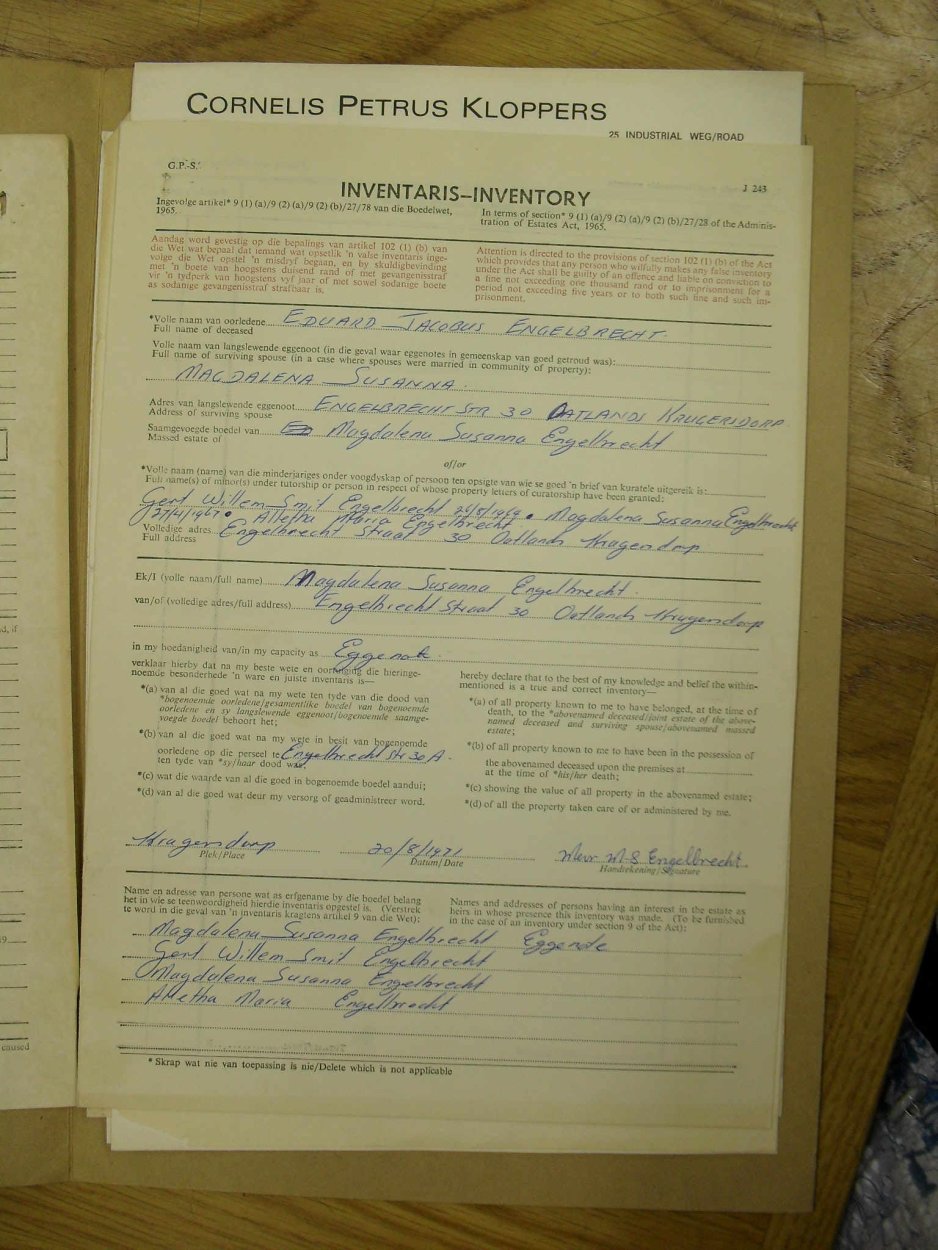 CORNELIS PETRUS KLOPPERS
25 INDUSTRIAL WEG/ROAD
G.P.-S.
J 243
INVENTARIS—INVENTORY
Ingevolge artikel* 9 (1) (a)/9 (2) (a)/9 (2) (b)/27/78 van die Boedelwet,
1965.
In terms of section* 9 (1) (a)/9 (2) (a)/9 (2) (b)/27/28 of the Adminis-
tration of Estates Act, 1965.
Aandag word gevestig op die bepalings van artikel 102 (1) (b) van
die Wet wat bepaal dat iemand wat opsetlik 'n valse inventaris inge-
volge die Wet opstel 'n misdryf begaan, en by skuldigbevinding
met 'n boete van hoogstens duisend rand of met gevangenisstraf
vir 'n tydperk van hoogstens vyf jaar of met sowel sodanige boete
as sodanige gevangenisstraf strafbaar is.
Attention is directed to the provisions of section 102 (1) (b) of the Act
which provides that any person who wilfully makes any false inventory
under the Act shall be guilty of an offence and liable on conviction to
a fine not exceeding one thousand rand or to imprisonment for a
period not exceeding five years or to both such fine and such im-
prisonment.
*Volle naam van oorledene EDUARD JACOBUS ENGELBRECHT
Full name of deceased
Volle naam van langslewende eggenoot (in die geval waar eggenotes in gemeenskap van goed getroud was):
Full name of surviving spouse (in a case where spouses were married in community of property):
MAGDALENA SUSANNA.
Adres van langslewende eggenoot ENGELBRECHT STR 30 OATLANDS KRUGERSDORP
Address of surviving spouse
Saamgevoegde boedel van Magdalena Susanna Engelbrecht
Massed estate of
of/or
*Volle naam (name) van die minderjariges onder voogdyskap of persoon ten opsigte van wie se goed 'n brief van kuratele uitgereik is:
Full name(s) of minor(s) under tutorship or person in respect of whose property letters of curatorship have been granted:
Gert Willem Smit Engelbrecht Magdalena Susanna Engelbrecht
Alletha Maria Engelbrecht
Volledige adres Engelbrecht Straat 30 Oatlands Krugersdorp
Full address
Ek/I (volle naam/full name) Magdalena Susanna Engelbrecht
van/of (volledige adres/full address) Engelbrecht Straat 30 Oatlands Krugersdorp
in my hoedanigheid van/in my capacity as Eggenote
verklaar hierby dat na my beste wete en oortuiging die hieringe-
noemde besonderhede 'n ware en juiste inventaris is—
*(a) van al die goed wat na my wete ten tyde van die dood van
*bogenoemde oorledene/gesamentlike boedel van bogenoemde
oorledene en sy langslewende eggenoot/bogenoemde saamge-
voegde boedel behoort het;
*(b) van al die goed wat na my wete in besit van bogenoemde
oorledene op die perseel te Engelbrecht Str 30A.
ten tyde van *sy/haar dood was;
*(c) wat die waarde van al die goed in bogenoemde boedel aandui;
*(d) van al die goed wat deur my versorg of geadministreer word.
hereby declare that to the best of my knowledge and belief the within-
mentioned is a true and correct inventory—
*(a) of all property known to me to have belonged, at the time of
death, to the *abovenamed deceased/joint estate of the above-
named deceased and surviving spouse/abovenamed massed
estate;
*(b) of all property known to me to have been in the possession of
the abovenamed deceased upon the premises at
at the time of *his/her death;
*(c) showing the value of all property in the abovenamed estate;
*(d) of all the property taken care of or administered by me.
Krugersdorp 20/8/1971 Mev M-S Engelbrecht
Plek/Place Datum/Date Handtekening/Signature
Name en adresse van persone wat as erfgename by die boedel belang
het in wie se teenwoordigheid hierdie inventaris opgestel is. (Verstrek
te word in die geval van 'n inventaris kragtens artikel 9 van die Wet):
Names and addresses of persons having an interest in the estate as
heirs in whose presence this inventory was made. (To be furnished
in the case of an inventory under section 9 of the Act):
Magdalena Susanna Engelbrecht Eggenote
Gert Willem Smit Engelbrecht
Magdalena Susanna Engelbrecht
Alletha Maria Engelbrecht
* Skrap wat nie van toepassing is nie/Delete which is not applicable